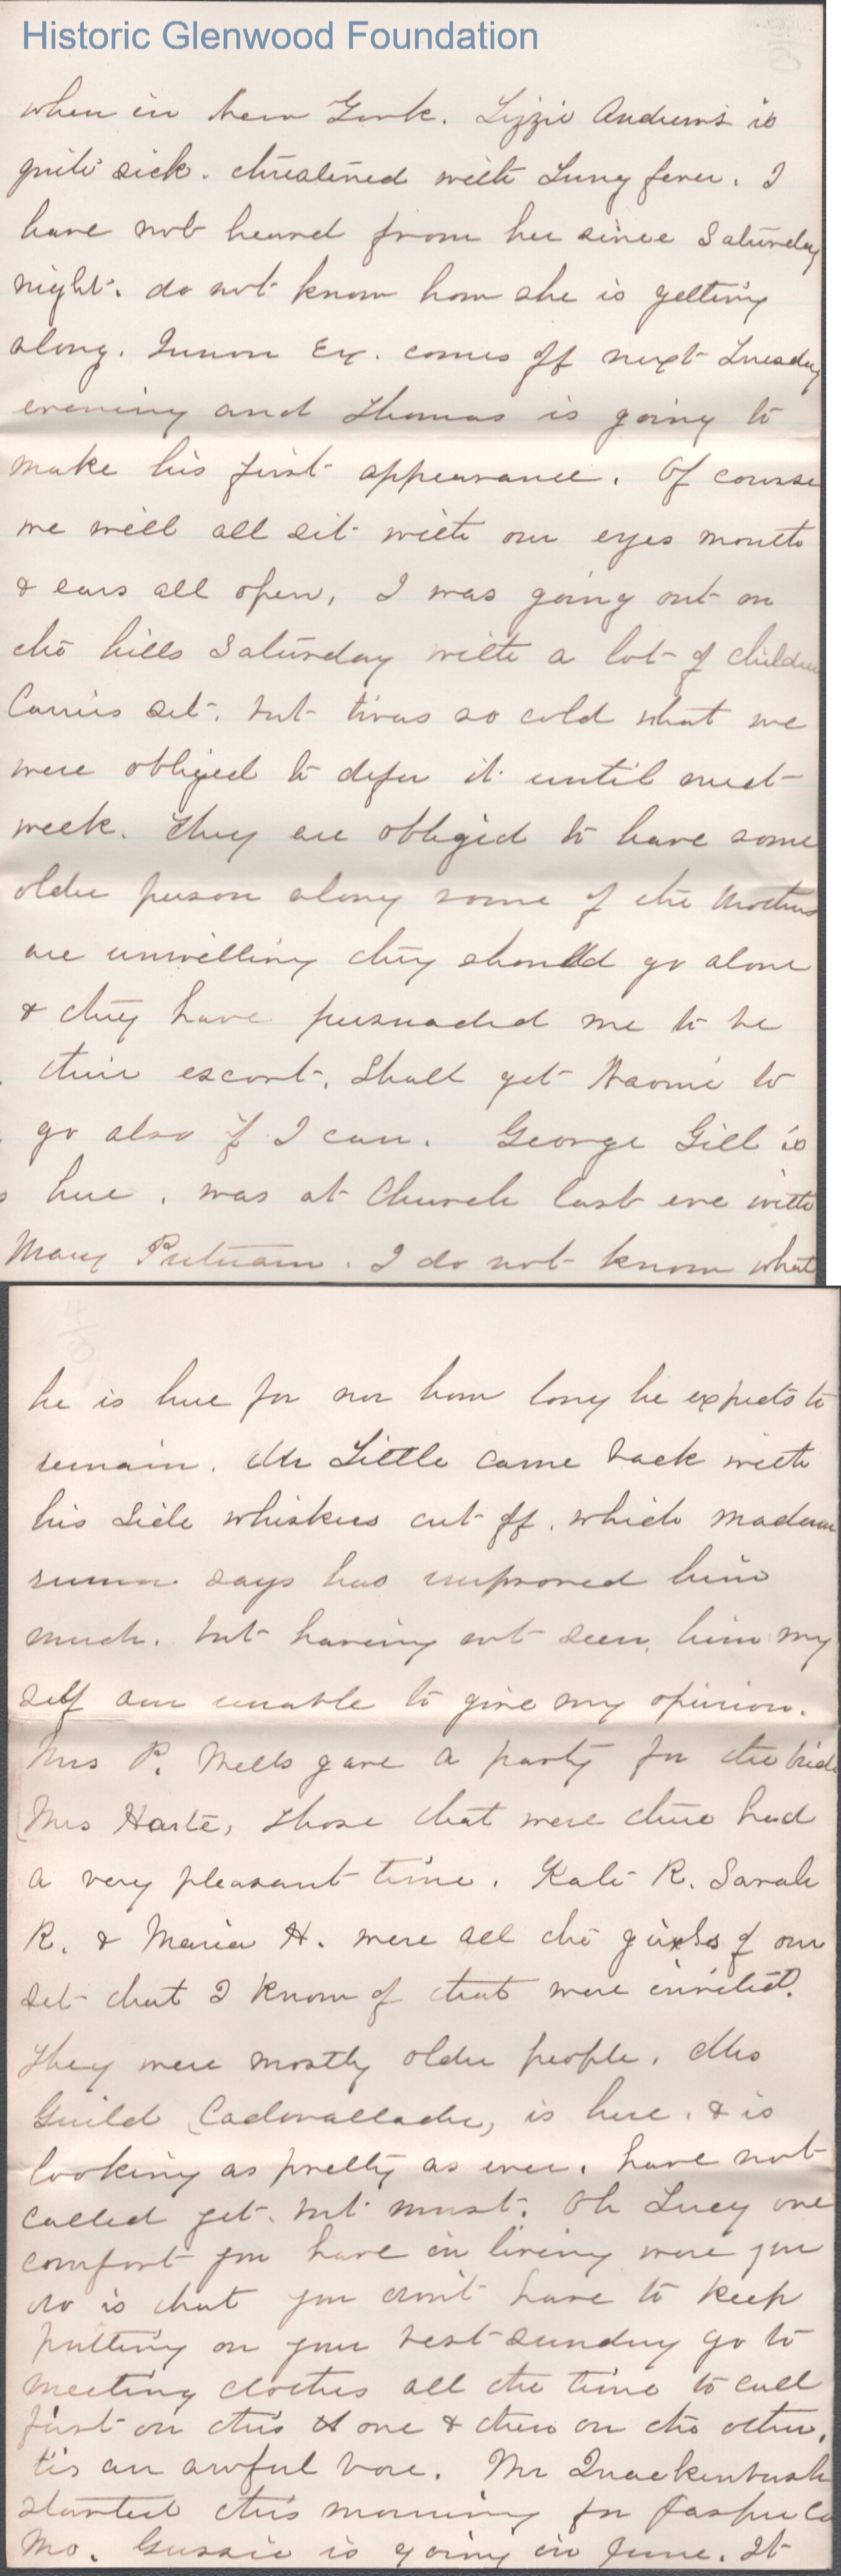 Historic Glenwood Foundation
when in New York. Lizzie Andrews is
quite sick. threatened with Lung fever. I
have not heard from her since Saturday
night. do not know how she is getting
along. Junior Ex. comes off next Tuesday
evening and Thomas is going to
make his first appearance. Of course
we will all sit with our eyes mouth
& ears all open, I was going out on
the hills Saturday with a lot of children
Carries set. but twas so cold that we
were obliged to defer it until next
week. They are obliged to have some
older person along some of the Mothers
are unwilling they should go alone
& they have persuaded me to be
their escort. Shall get Naomi to
go also if I can. George Gill is
here. was at Church last eve with
Mary Putnam. I do not know what
he is here for nor how long he expects to
remain. Mr Little came back with
his side whiskers cut off. which madam
rumor says has improved him
much. but having not seen him my
self am unable to give my opinion.
Mrs P. Wells gave a party for the bride
Mrs Harte, those that were there had
a very pleasant time. Kate R. Sarah
R. & Maria H. were all the girls of our
set that I know of that were invited.
They were mostly older people. Mrs
Guild (Cadwallader) is here. & is
looking as pretty as ever. have not
called yet. but must. Oh Lucy one
comfort you have in living were you
do is that you don't have to keep
putting on your best sunday go to
meeting clothes all the time to call
first on this one & then on the other.
tis an awful bore. Mr Quackenbush
started this morning for Jasper Co
Mo. Gussie is going in June. It